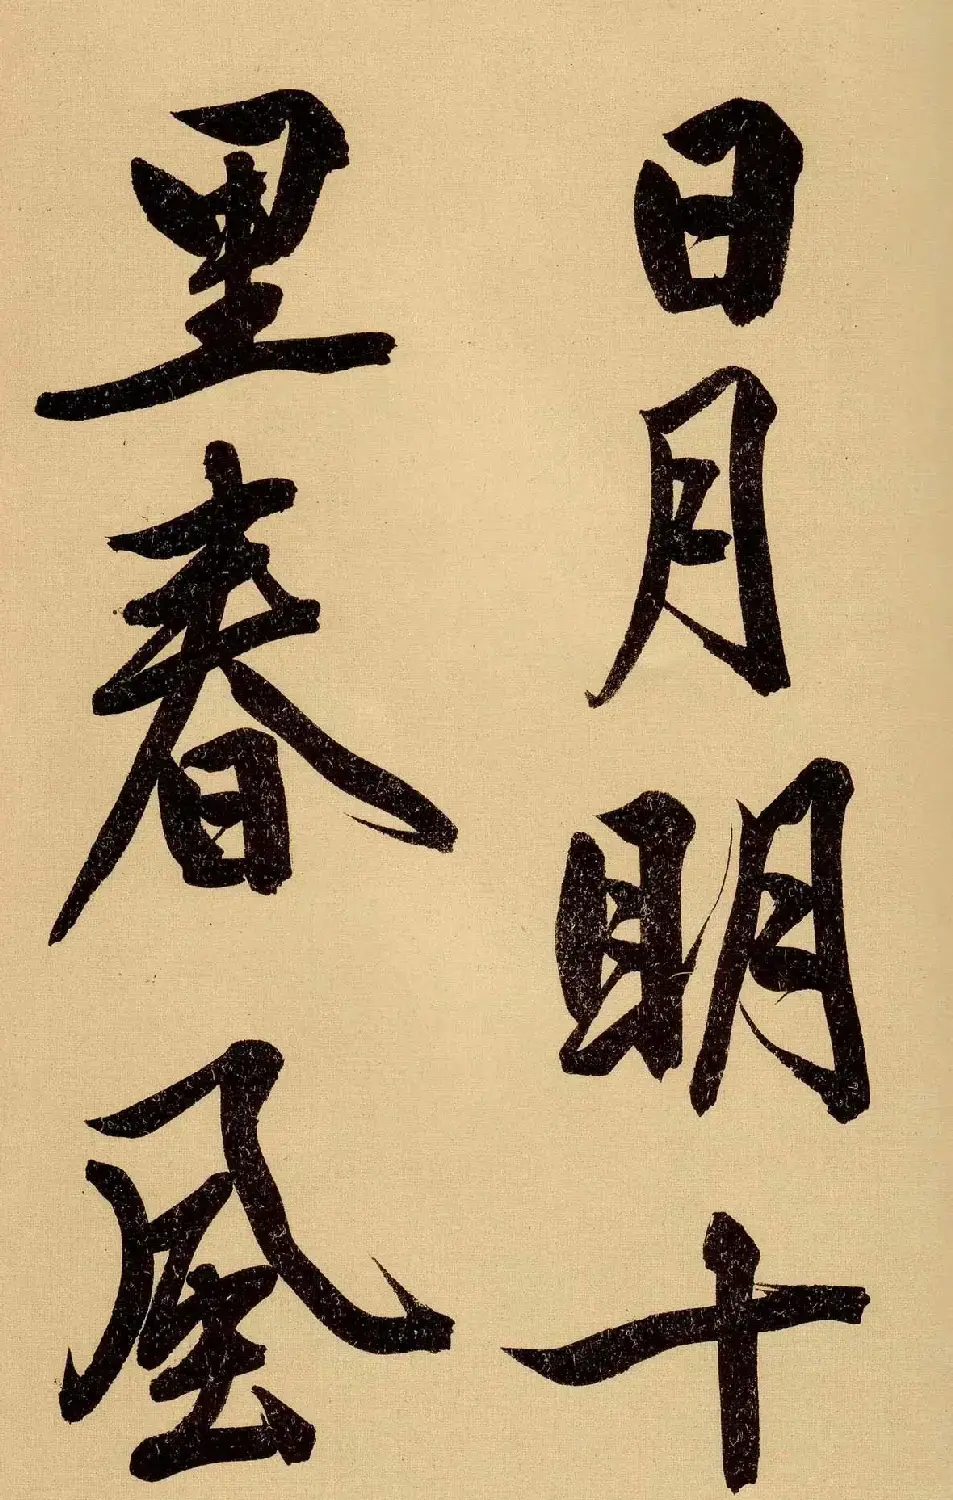 日月明十
里春風